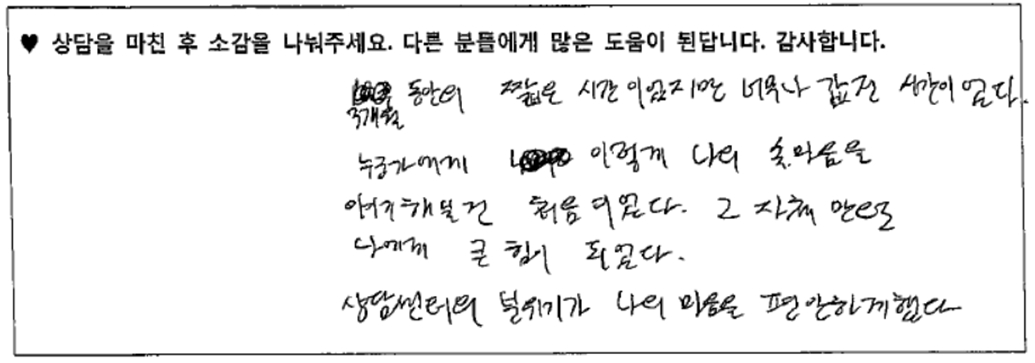 ♥ 상담을 마친 후 소감을 나눠주세요. 다른 분들에게 많은 도움이 된답니다. 감사합니다.
3개월 동안의 짧은 시간이었지만 너무나 값진 시간이었다.
누군가에게 이렇게 나의 속마음을
얘기해본건 처음이었다. 그 자체만으로
나에게 큰 힘이 되었다.
상담센터의 분위기가 나의 마음을 편안하게했다